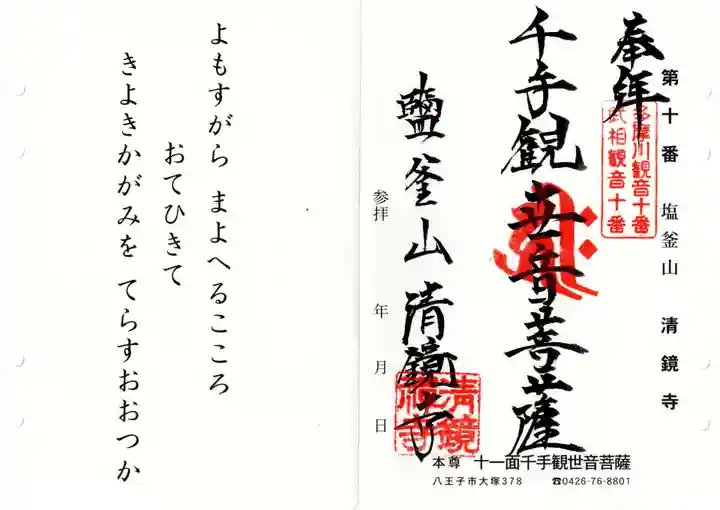 第十番 塩釜山 清鏡寺
奉拝
多摩川観音十番
武相観音十番
千手観世音菩薩
鹽釜山 清鏡寺
参拝 年 月 日
本尊 十一面千手観世音菩薩
八王子市大塚378 ☎0426-76-8801
よもすがら まよへるこころ
おてひきて
きよきかがみを てらすおおつか